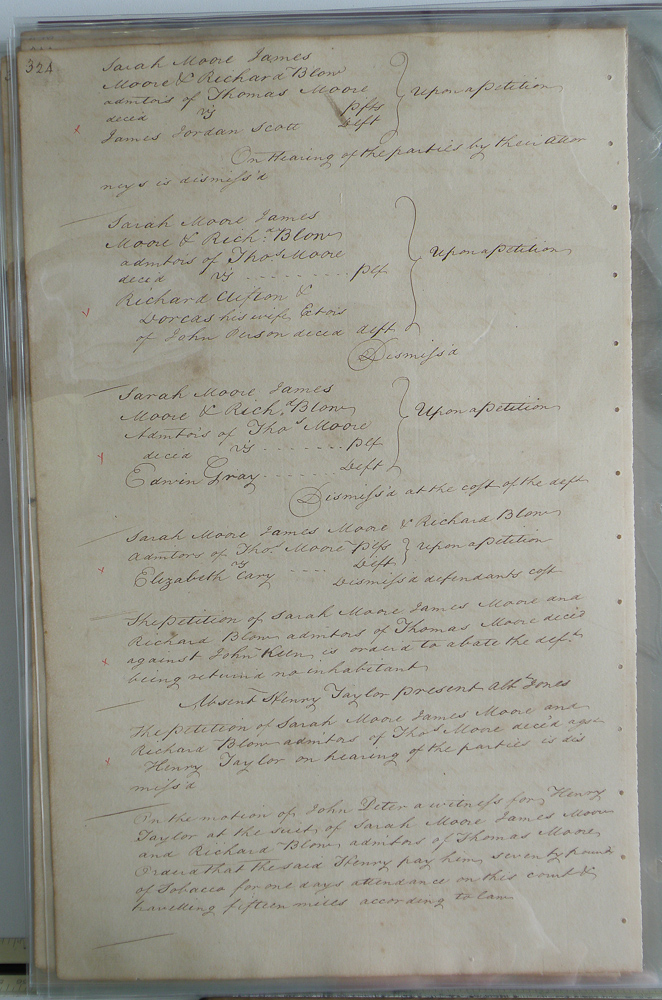 324
Sarah Moore James
Moore & Richard Blow
admtors of Thomas Moore
decd vs Plfs
James Jordan Scott Deft
Upon a Petition
On Hearing of the parties by their Attor
neys is dismiss'd
Sarah Moore James
Moore & Richd. Blow
admtors of Thos Moore
decd vs Plf
Richard Clifton &
Dorcas his wife Extors
of John Person decd deft
Upon a Petition
Dismiss'd
Sarah Moore James
Moore & Richd. Blow
Admtors of Thos Moore
decd vs Plf
Edwin Gray Deft
Upon a Petition
Dismiss'd at the cost of the deft
Sarah Moore James Moore & Richard Blow
Admtors of Thos. Moore Plfs
vs Deft
Upon a Petition
Elizabeth Cary Dismiss'd defendants cost
The petition of Sarah Moore James Moore and
Richard Blow admtors of Thomas Moore decd
against John Keen is orderd to abate the deft
being returnd no inhabitant
Absent Henry Taylor present Alb Jones
The petition of Sarah Moore James Moore and
Richard Blow admtors of Thos Moore dec'd agst
Henry Taylor on hearing of the parties is dis
miss'd
On the motion of John Peter a witness for Henry
Taylor at the suit of Sarah Moore James Moore
and Richard Blow admtors of Thomas Moore
Orderd that the said Henry pay him seventy pounds
of Tobacco for one days attendance on this court &
travelling fifteen miles according to law